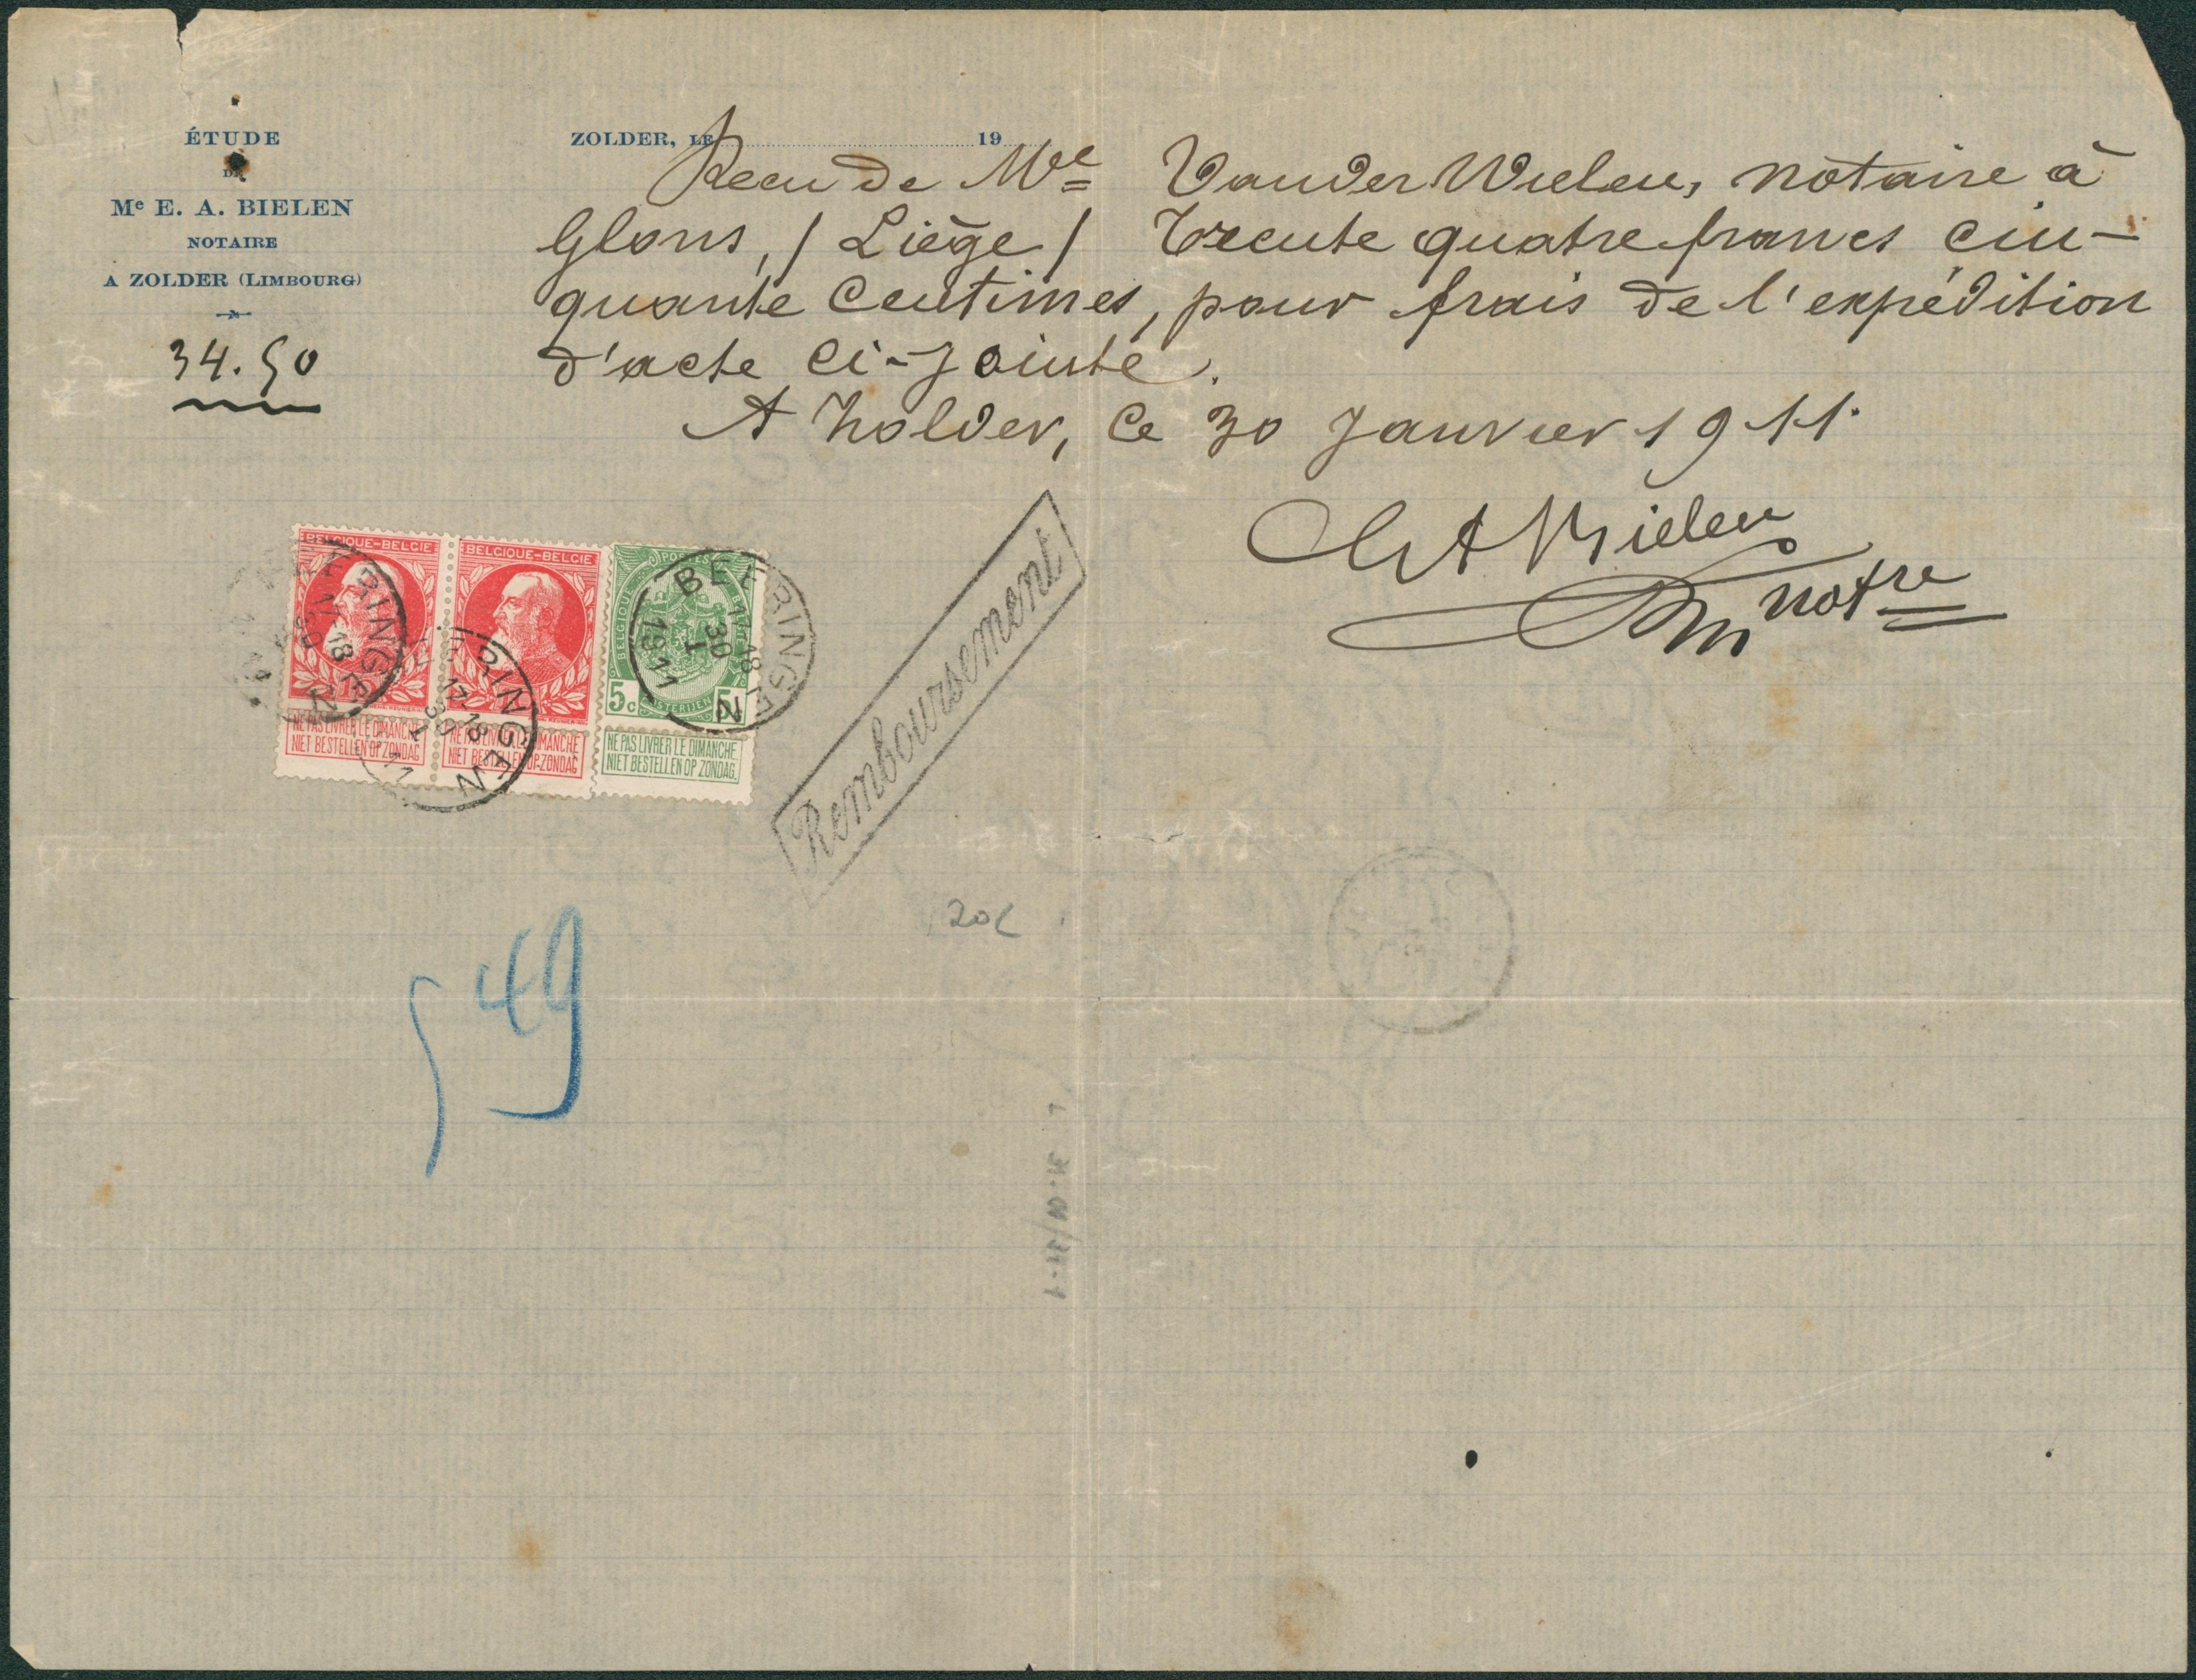 ÉTUDE
DE
Me E. A. BIELEN
NOTAIRE
A ZOLDER (LIMBOURG)
34.50
ZOLDER, LE 19
Recu de Me Vander Wielen, notaire à
Glons, / Liège / Trente quatre francs cin-
quante centimes, pour frais de l'expédition
d'acte ci-jointe.
A Zolder, ce 30 Janvier 1911.
Bielen
notre
BELGIQUE-BELGIE
BELGIQUE-BELGIE
POSTES
BELGIQUE
5c 5c
NE PAS LIVRER LE DIMANCHE
NIET BESTELLEN OP ZONDAG
NE PAS LIVRER LE DIMANCHE
NIET BESTELLEN OP ZONDAG
NE PAS LIVRER LE DIMANCHE
NIET BESTELLEN OP ZONDAG
BEERINGEN
18
30
BEERINGEN
17-18
30
1
11
BEERINGEN
17-18
30
I
1911
Remboursement
549